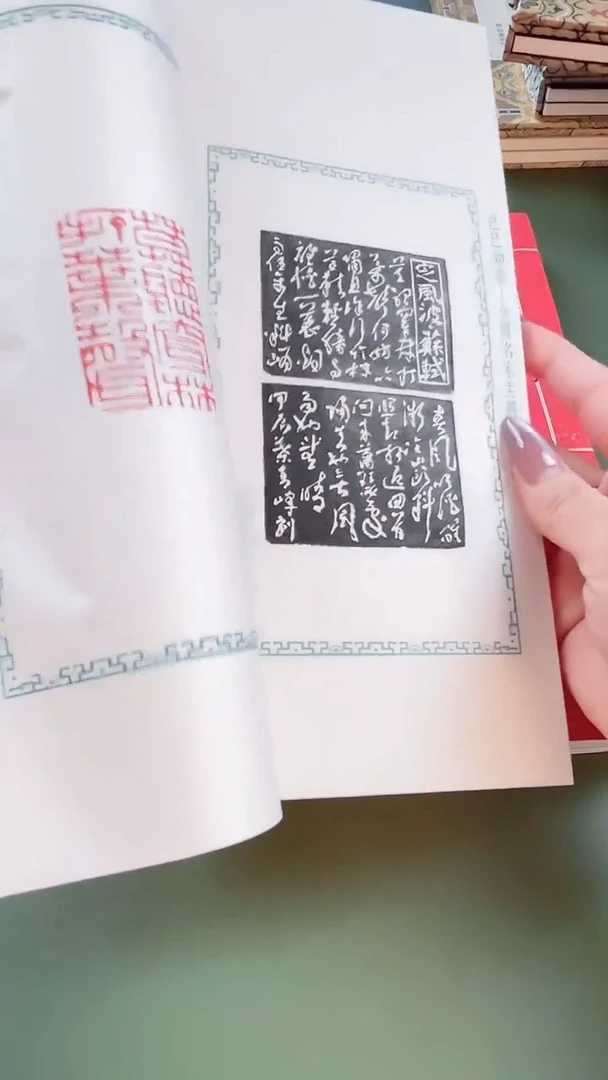 莫聽穿林
打葉聲
定風波 蘇軾
莫聽穿林打
葉聲何妨吟
嘯且徐行竹杖
芒鞋輕勝馬
誰怕一蓑烟
雨任平生料峭
春風吹酒醒
微冷山頭斜
照却相迎回首
向來蕭瑟處
歸去也無風
雨也無晴
甲辰葉青峰刻